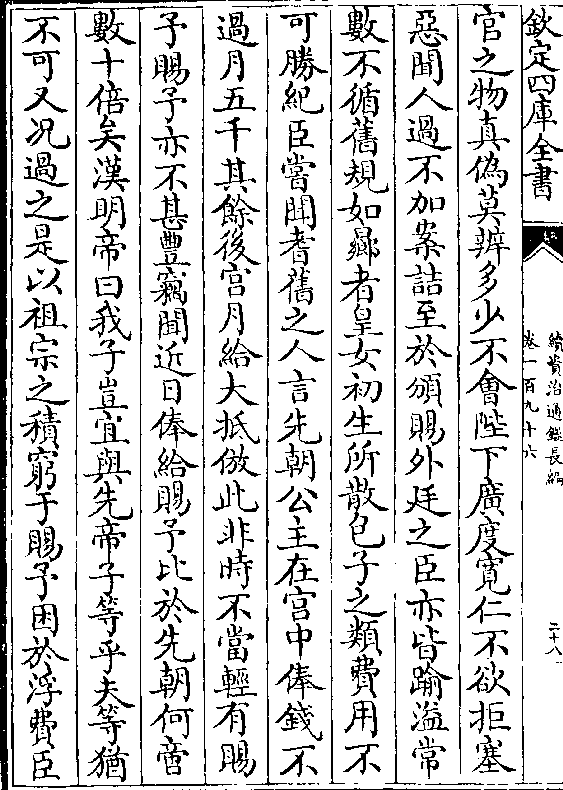 欽定四庫全書
續資治通鑑長編
卷一百九十六
二十八
官之物真偽莫辨多少不㑹陛下廣度寛仁不欲拒塞
惡聞人過不加案詰至於頒賜外廷之臣亦皆踰溢常
數不循舊規如曏者皇女初生所散包子之類費用不
可勝紀臣嘗聞耆舊之人言先朝公主在宫中俸錢不
過月五千其餘後宫月給大抵倣此非時不當輕有賜
予賜予亦不甚豐竊聞近日俸給賜予比於先朝何啻
數十倍矣漢明帝曰我子豈宜與先帝子等乎夫等猶
不可又况過之是以祖宗之積窮于賜予困於浮費臣